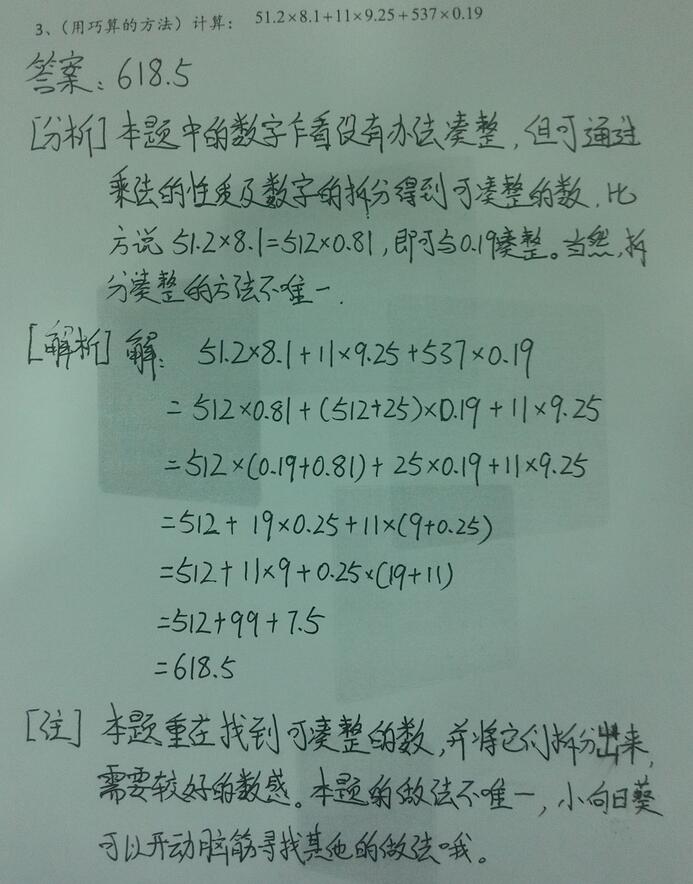 3、（用巧算的方法）计算： 51.2×8.1+11×9.25+537×0.19
答案：618.5
[分析] 本题中的数字乍看没有办法凑整，但可通过
乘法的性质及数字的拆分得到可凑整的数，比
方说 51.2×8.1=512×0.81，即可与0.19凑整。当然，拆
分凑整的方法不唯一.
[解析] 解： 51.2×8.1+11×9.25+537×0.19
= 512×0.81+(512+25)×0.19+11×9.25
=512×(0.19+0.81)+25×0.19+11×9.25
=512+19×0.25+11×(9+0.25)
=512+11×9+0.25×(19+11)
=512+99+7.5
=618.5
[注] 本题重在找到可凑整的数，并将它们拆分出来，
需要较好的数感。本题的做法不唯一，小向日葵
可以开动脑筋寻找其他的做法哦。